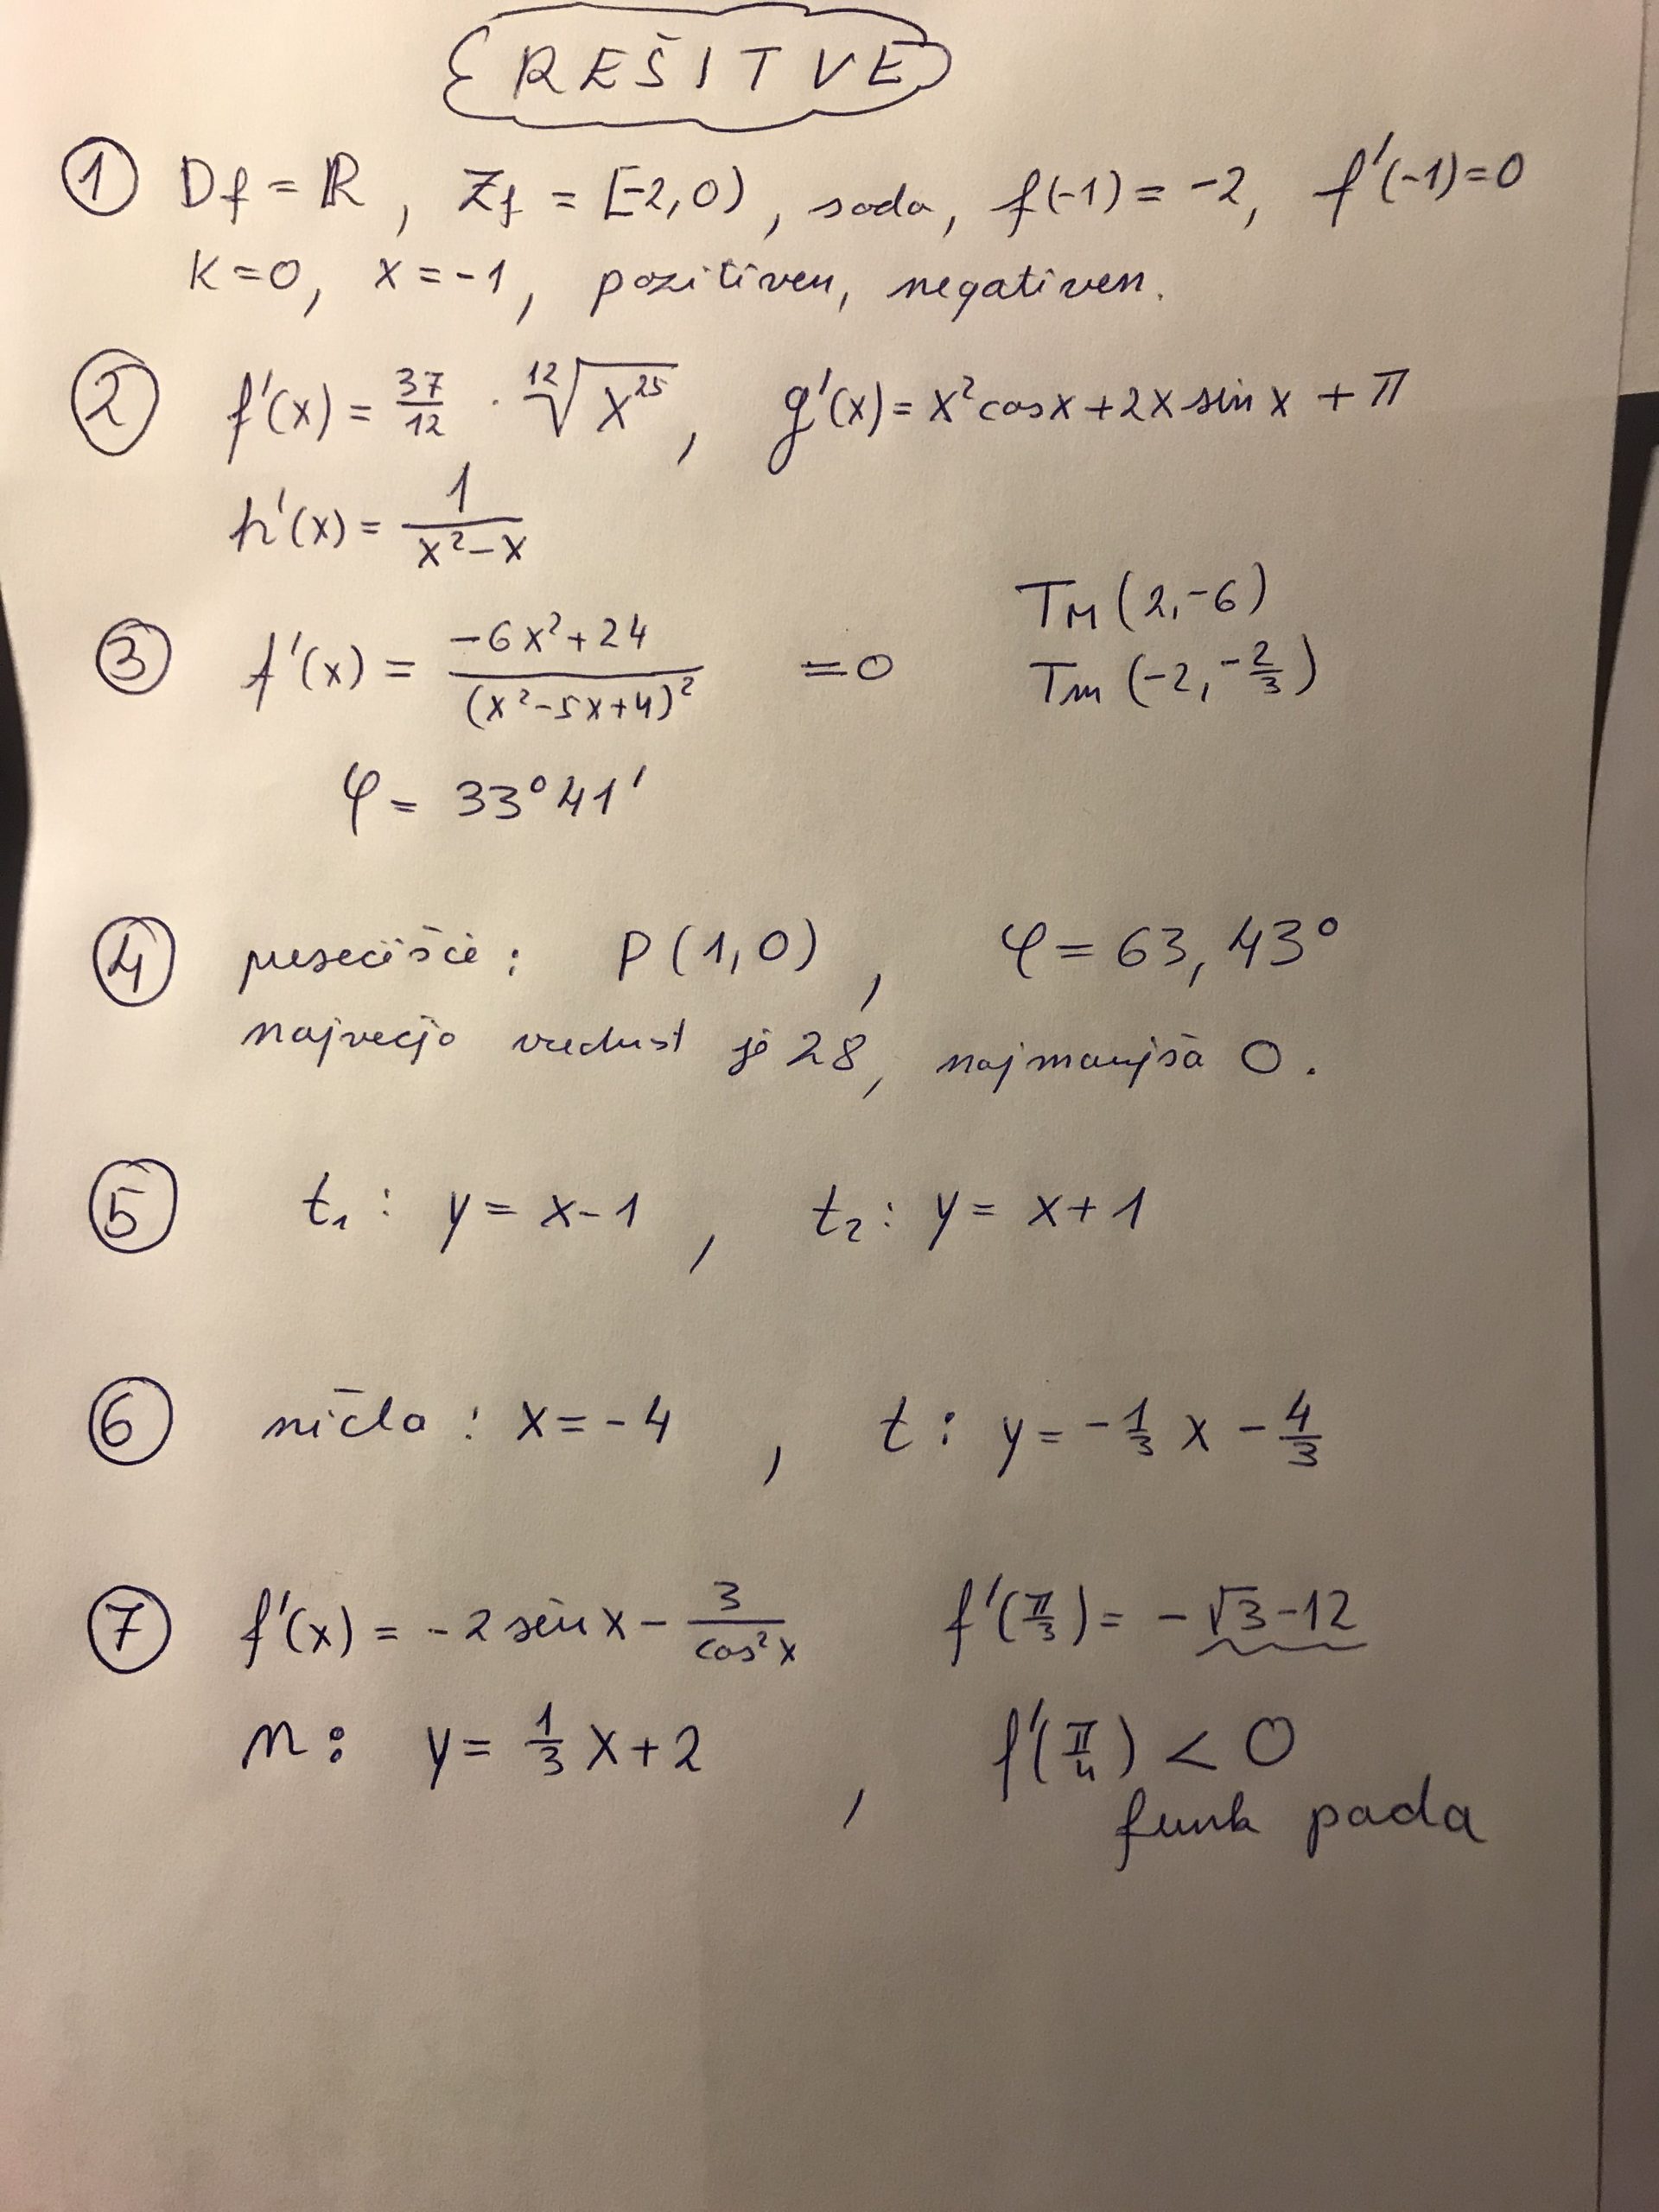 REŠITVE
① Df = ℝ, Zf = [-2,0), soda, f(-1) = -2, f'(-1)=0
K=0, x=-1, pozitiven, negativen.
② f'(x) = 37/12 · ¹²√x²⁵, g'(x) = x²cosx + 2x sin x + π
h'(x) = 1/(x²-x)
③ f'(x) = (-6x²+24)/(x²-5x+4)² =0 TM (2,-6)
Tm (-2,-2/3)
φ = 33°41'
④ presečišče: P(1,0), φ = 63,43°
največja vrednost je 28, najmanjša 0.
⑤ t₁: y = x-1, t₂: y = x+1
⑥ ničla: x=-4, t: y = -1/3 x - 4/3
⑦ f'(x) = -2 sin x - 3/cos²x f'(π/3) = -√3-12
n: y = 1/3 x+2, f'(π/4) < 0
funk pada